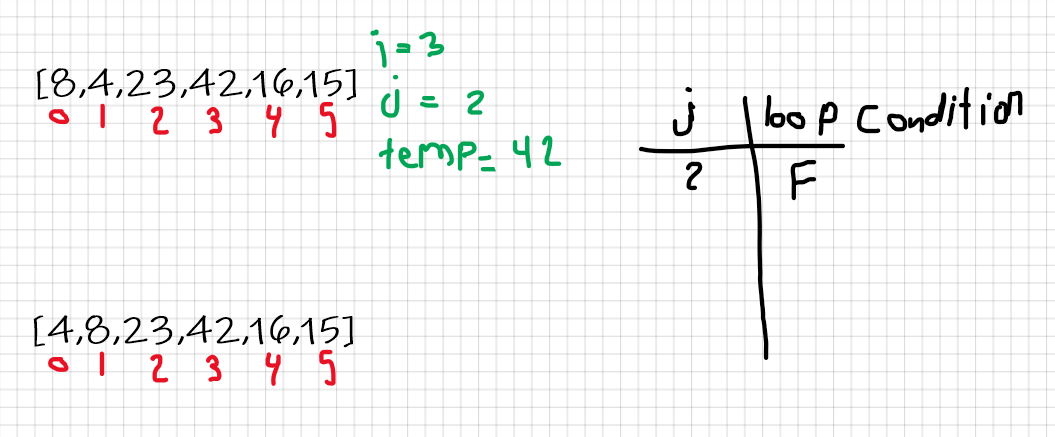 i = 3
[8,4,23,42,16,15]
0 1 2 3 4 5
j = 2
temp= 42
j loop condition
2 F
[4,8,23,42,16,15]
0 1 2 3 4 5